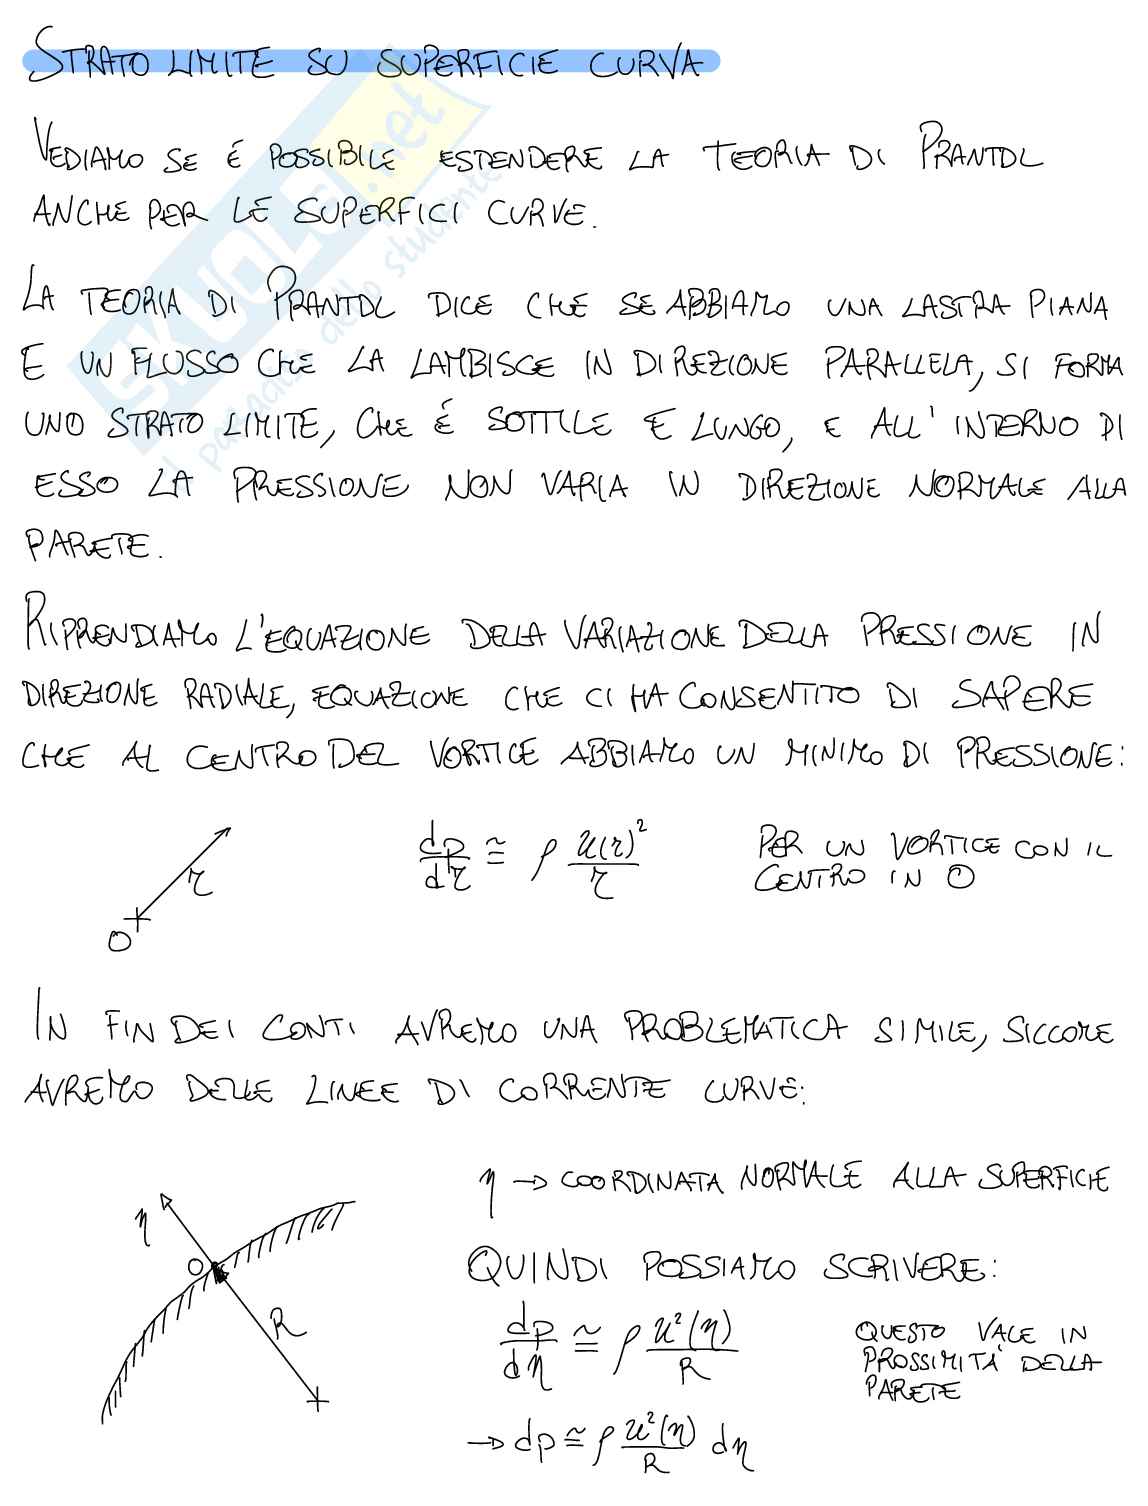 STRATO LIMITE SU SUPERFICIE CURVA
VEDIAMO SE É POSSIBILE ESTENDERE LA TEORIA DI PRANTDL
ANCHE PER LE SUPERFICI CURVE.
LA TEORIA DI PRANTDL DICE CHE SE ABBIAMO UNA LASTRA PIANA
E UN FLUSSO CHE LA LAMBISCE IN DIREZIONE PARALLELA, SI FORMA
UNO STRATO LIMITE, CHE É SOTTILE E LUNGO, E ALL'INTERNO DI
ESSO LA PRESSIONE NON VARIA IN DIREZIONE NORMALE ALLA
PARETE.
RIPRENDIAMO L'EQUAZIONE DELLA VARIAZIONE DELLA PRESSIONE IN
DIREZIONE RADIALE, EQUAZIONE CHE CI HA CONSENTITO DI SAPERE
CHE AL CENTRO DEL VORTICE ABBIAMO UN MINIMO DI PRESSIONE:
r
O
dp/dr ≅ ρ u(r)²/r
PER UN VORTICE CON IL
CENTRO IN O
IN FIN DEI CONTI AVREMO UNA PROBLEMATICA SIMILE, SICCOME
AVREMO DELLE LINEE DI CORRENTE CURVE:
η
O
R
η → COORDINATA NORMALE ALLA SUPERFICIE
QUINDI POSSIAMO SCRIVERE:
dp/dη ≅ ρ u²(η)/R
QUESTO VALE IN
PROSSIMITÀ DELLA
PARETE
→ dp ≅ ρ u²(η)/R dη
SKUOLA.net
il paradiso dello studente